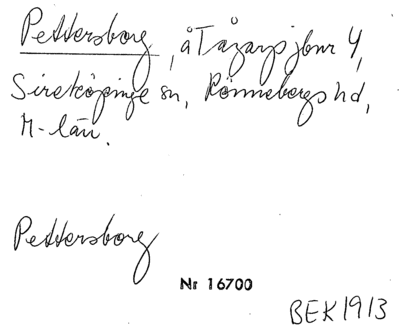 Pettersborg, å Tågarp jbnr 4,
Sireköpinge sn, Rönnebergs hd,
M-län.
Pettersborg
Nr 16700
BEK 1913